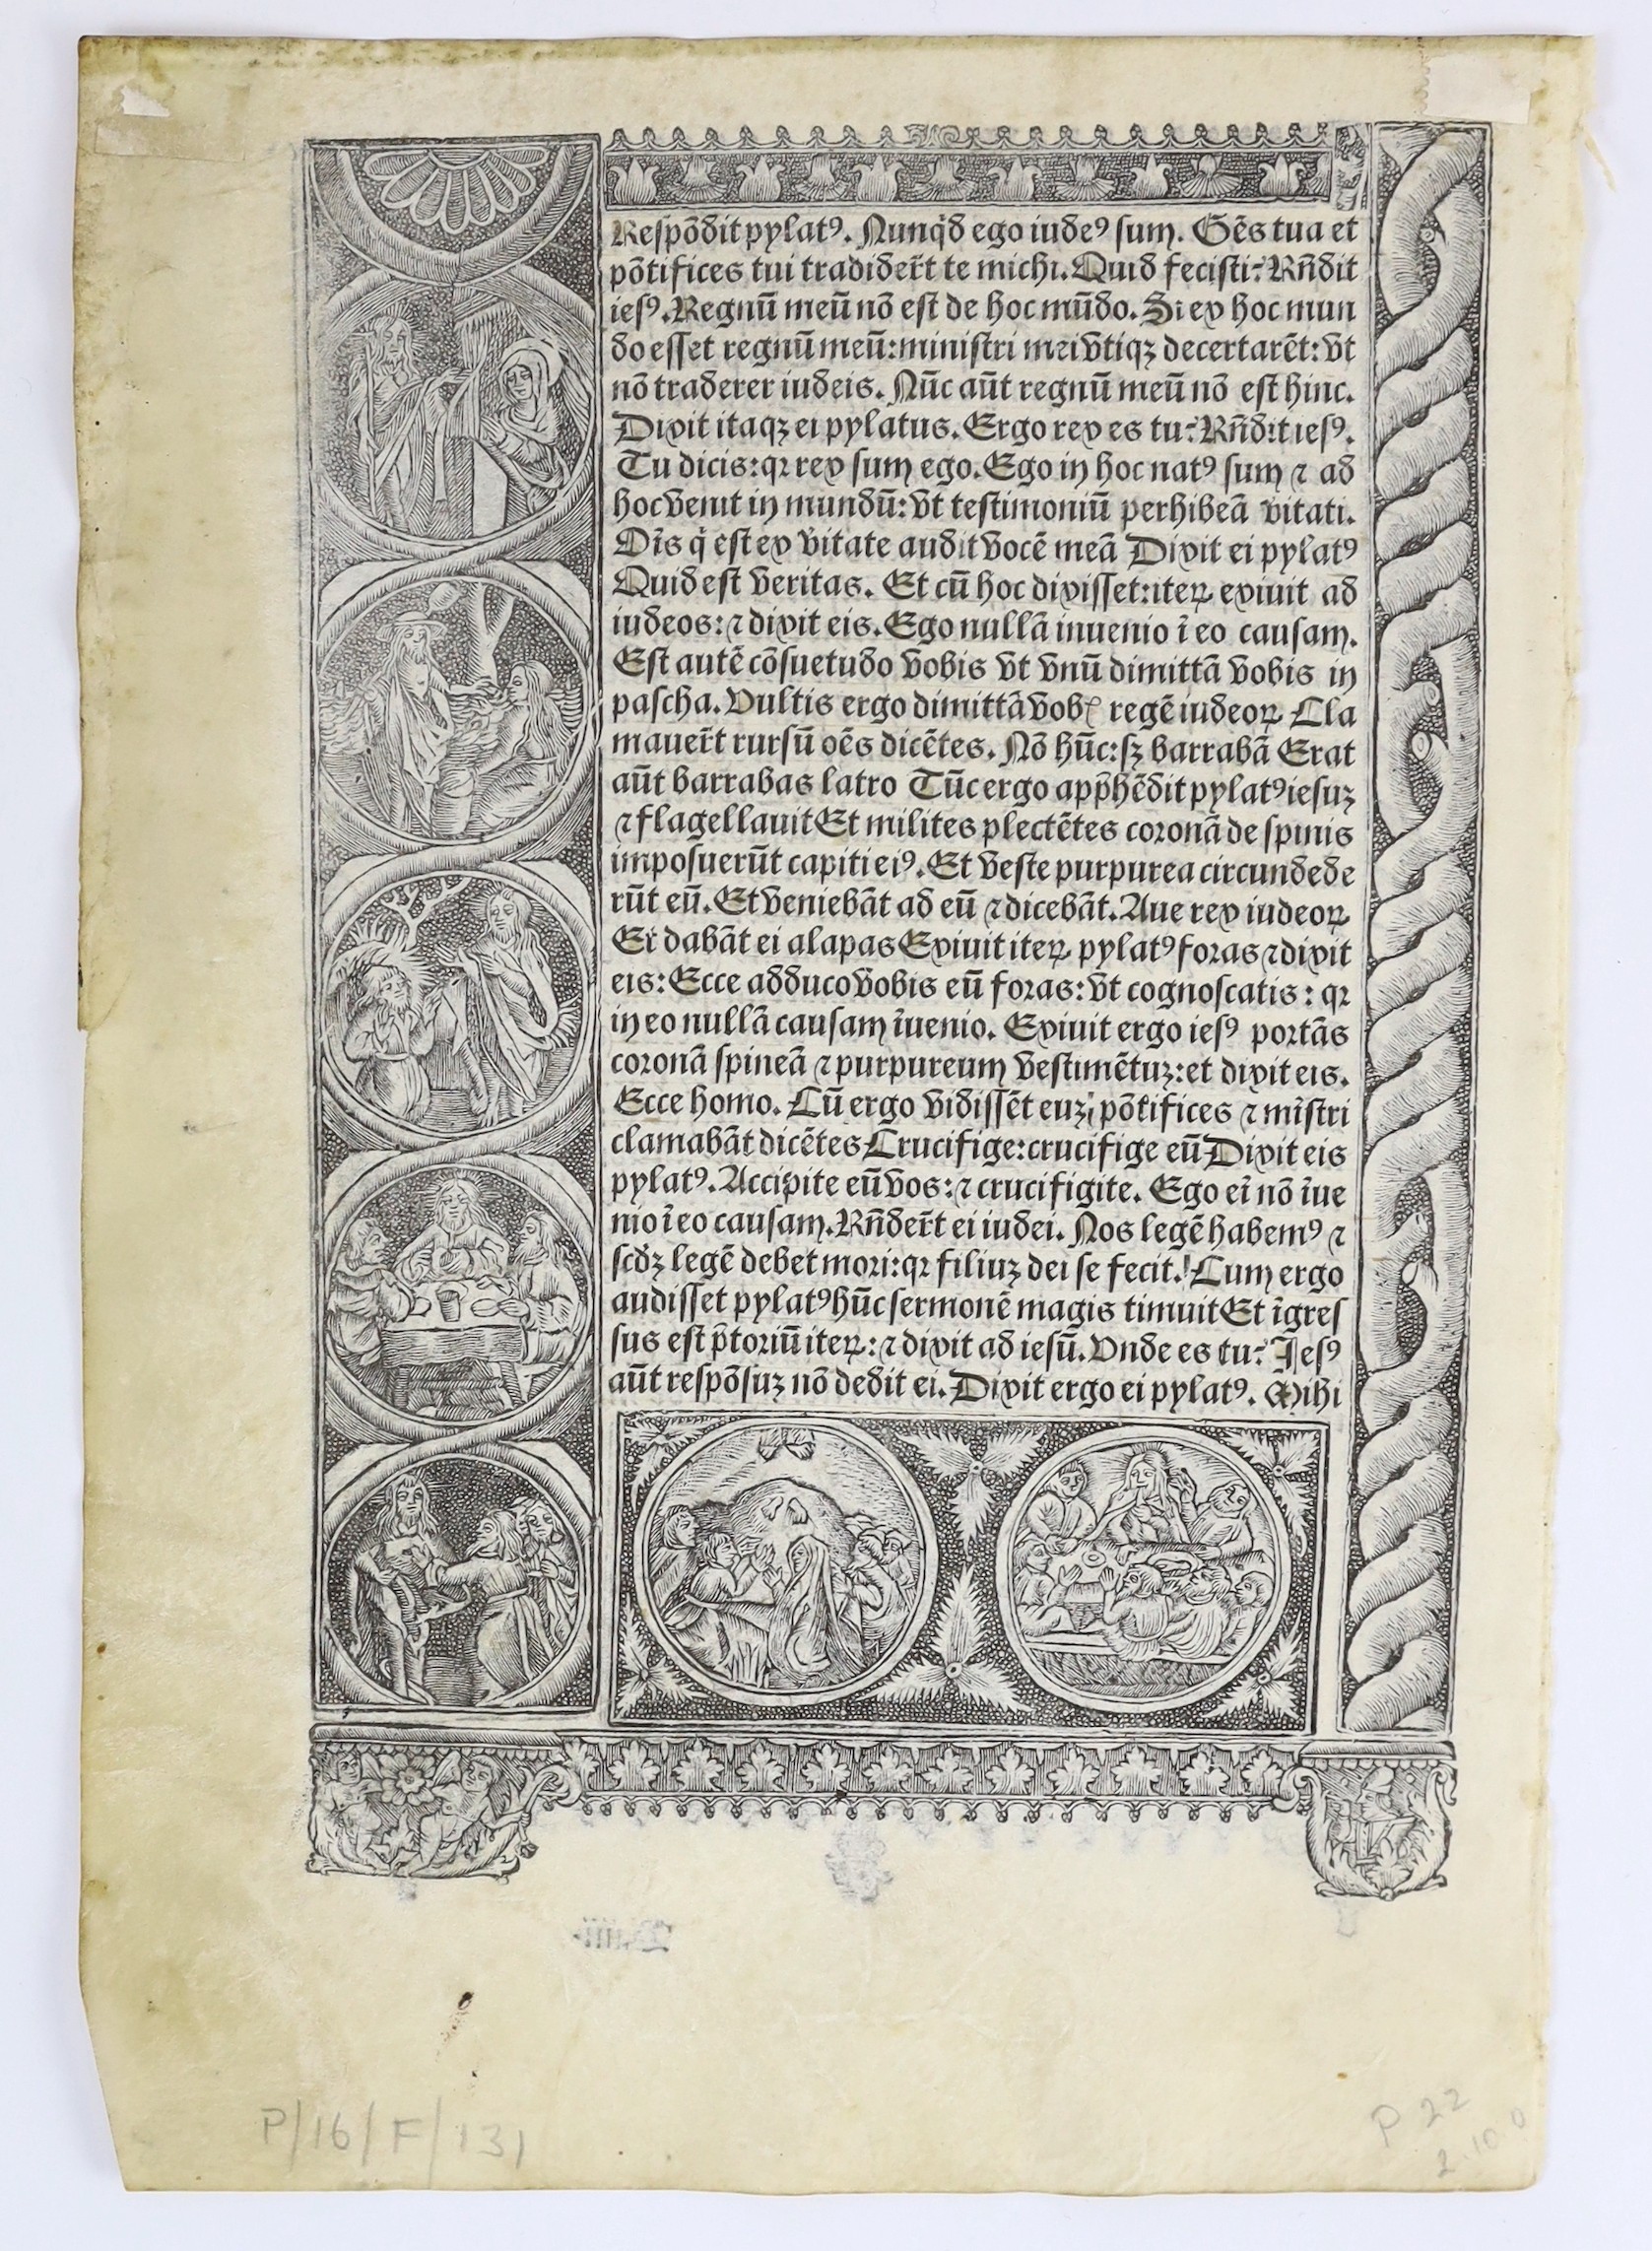 Respōdit pylatꝰ. Nunqͥd ego iudeꝰ sum. Gēs tua et
pōtifices tui tradider̄t te michi. Quid fecisti? Rn̄dit
iesꝰ. Regnū meū nō est de hoc mūdo. Si ex hoc mun
do esset regnū meū: ministri mei vtiqꝫ decertarēt: vt
nō traderer iudeis. Nūc aūt regnū meū nō est hinc.
Dixit itaqꝫ ei pylatus. Ergo rex es tu? Rn̄dit iesꝰ.
Tu dicis: qꝛ rex sum ego. Ego in hoc natꝰ sum ⁊ ad
hoc veni in mundū: vt testimoniū perhibeā v̄itati.
Oīs qͥ est ex v̄itate audit vocē meā Dixit ei pylatꝰ
Quid est veritas. Et cū hoc dixisset: iteꝝ exiuit ad
iudeos: ⁊ dixit eis. Ego nullā inuenio ī eo causam.
Est autē cōsuetudo vobis vt vnū dimittā vobis in
pascha. Vultis ergo dimittā vobꝭ regē iudeoꝝ Cla
mauer̄t rursū oēs dicētes. Nō hūc: sꝫ barrabā Erat
aūt barrabas latro Tūc ergo app̄hēdit pylatꝰ iesuꝫ
⁊ flagellauit Et milites plectētes coronā de spinis
imposuerūt capiti eiꝰ. Et veste purpurea circundede
rūt eū. Et veniebāt ad eū ⁊ dicebāt. Aue rex iudeoꝝ
Et dabāt ei alapas Exiuit iteꝝ pylatꝰ foras ⁊ dixit
eis: Ecce adduco vobis eū foras: vt cognoscatis: qꝛ
in eo nullā causam īuenio. Exiuit ergo iesꝰ portās
coronā spineā ⁊ purpureum vestimētuꝫ: et dixit eis.
Ecce homo. Cū ergo vidissēt euꝫ pōtifices ⁊ mīstri
clamabāt dicētes Crucifige: crucifige eū Dixit eis
pylatꝰ. Accipite eū vos: ⁊ crucifigite. Ego eī nō īue
nio ī eo causam. Rn̄der̄t ei iudei. Nos legē habemꝰ ⁊
scd̄ꝫ legē debet mori: qꝛ filiuꝫ dei se fecit. Cum ergo
audisset pylatꝰ hūc sermonē magis timuit Et īgres
sus est p̄toriū iteꝝ: ⁊ dixit ad iesū. Vnde es tu? Iesꝰ
aūt respōsuꝫ nō dedit ei. Dixit ergo ei pylatꝰ. Mihi
P/16/F/131
P 22
2.10.0